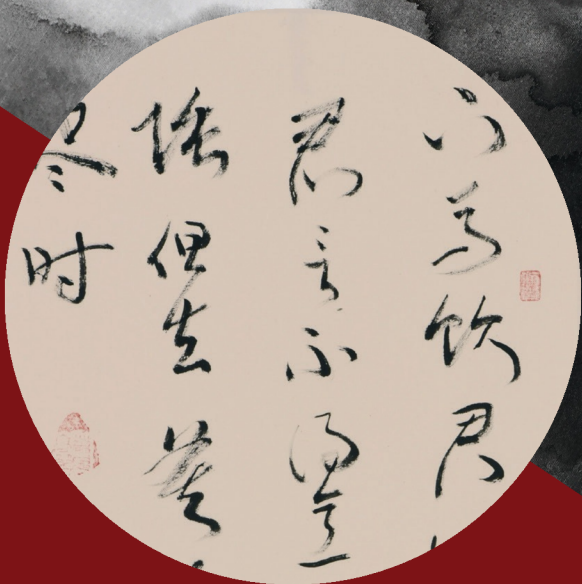 下馬飲君
君言不得意
陲但去莫
尽时